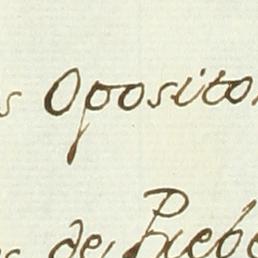 s Oposito
s de Prebe